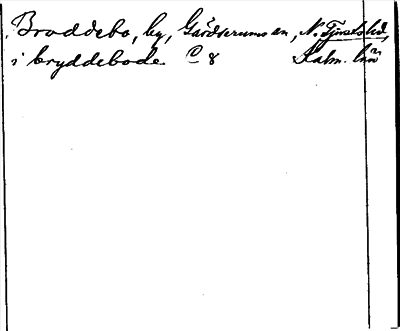 Broddebo, by, Gärdserums sn, N. Tjustshd,
i bryddebode. C 8 Kalm. län